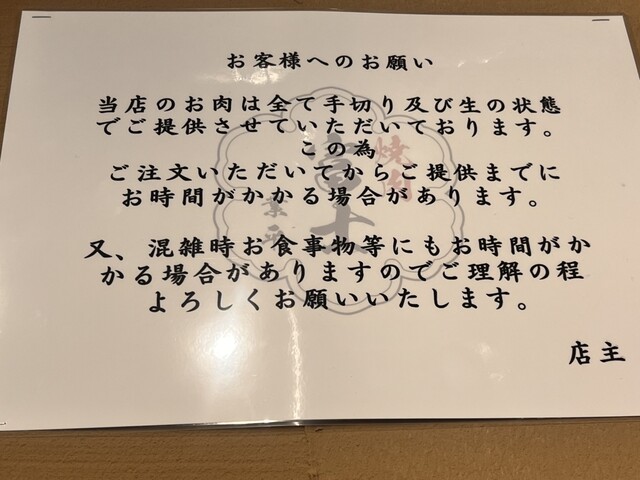 お客様へのお願い
当店のお肉は全て手切り及び生の状態
でご提供させていただいております。
この為
ご注文いただいてからご提供までに
お時間がかかる場合があります。
又、混雑時お食事物等にもお時間がか
かる場合がありますのでご理解の程
よろしくお願いいたします。
店主
焼肉